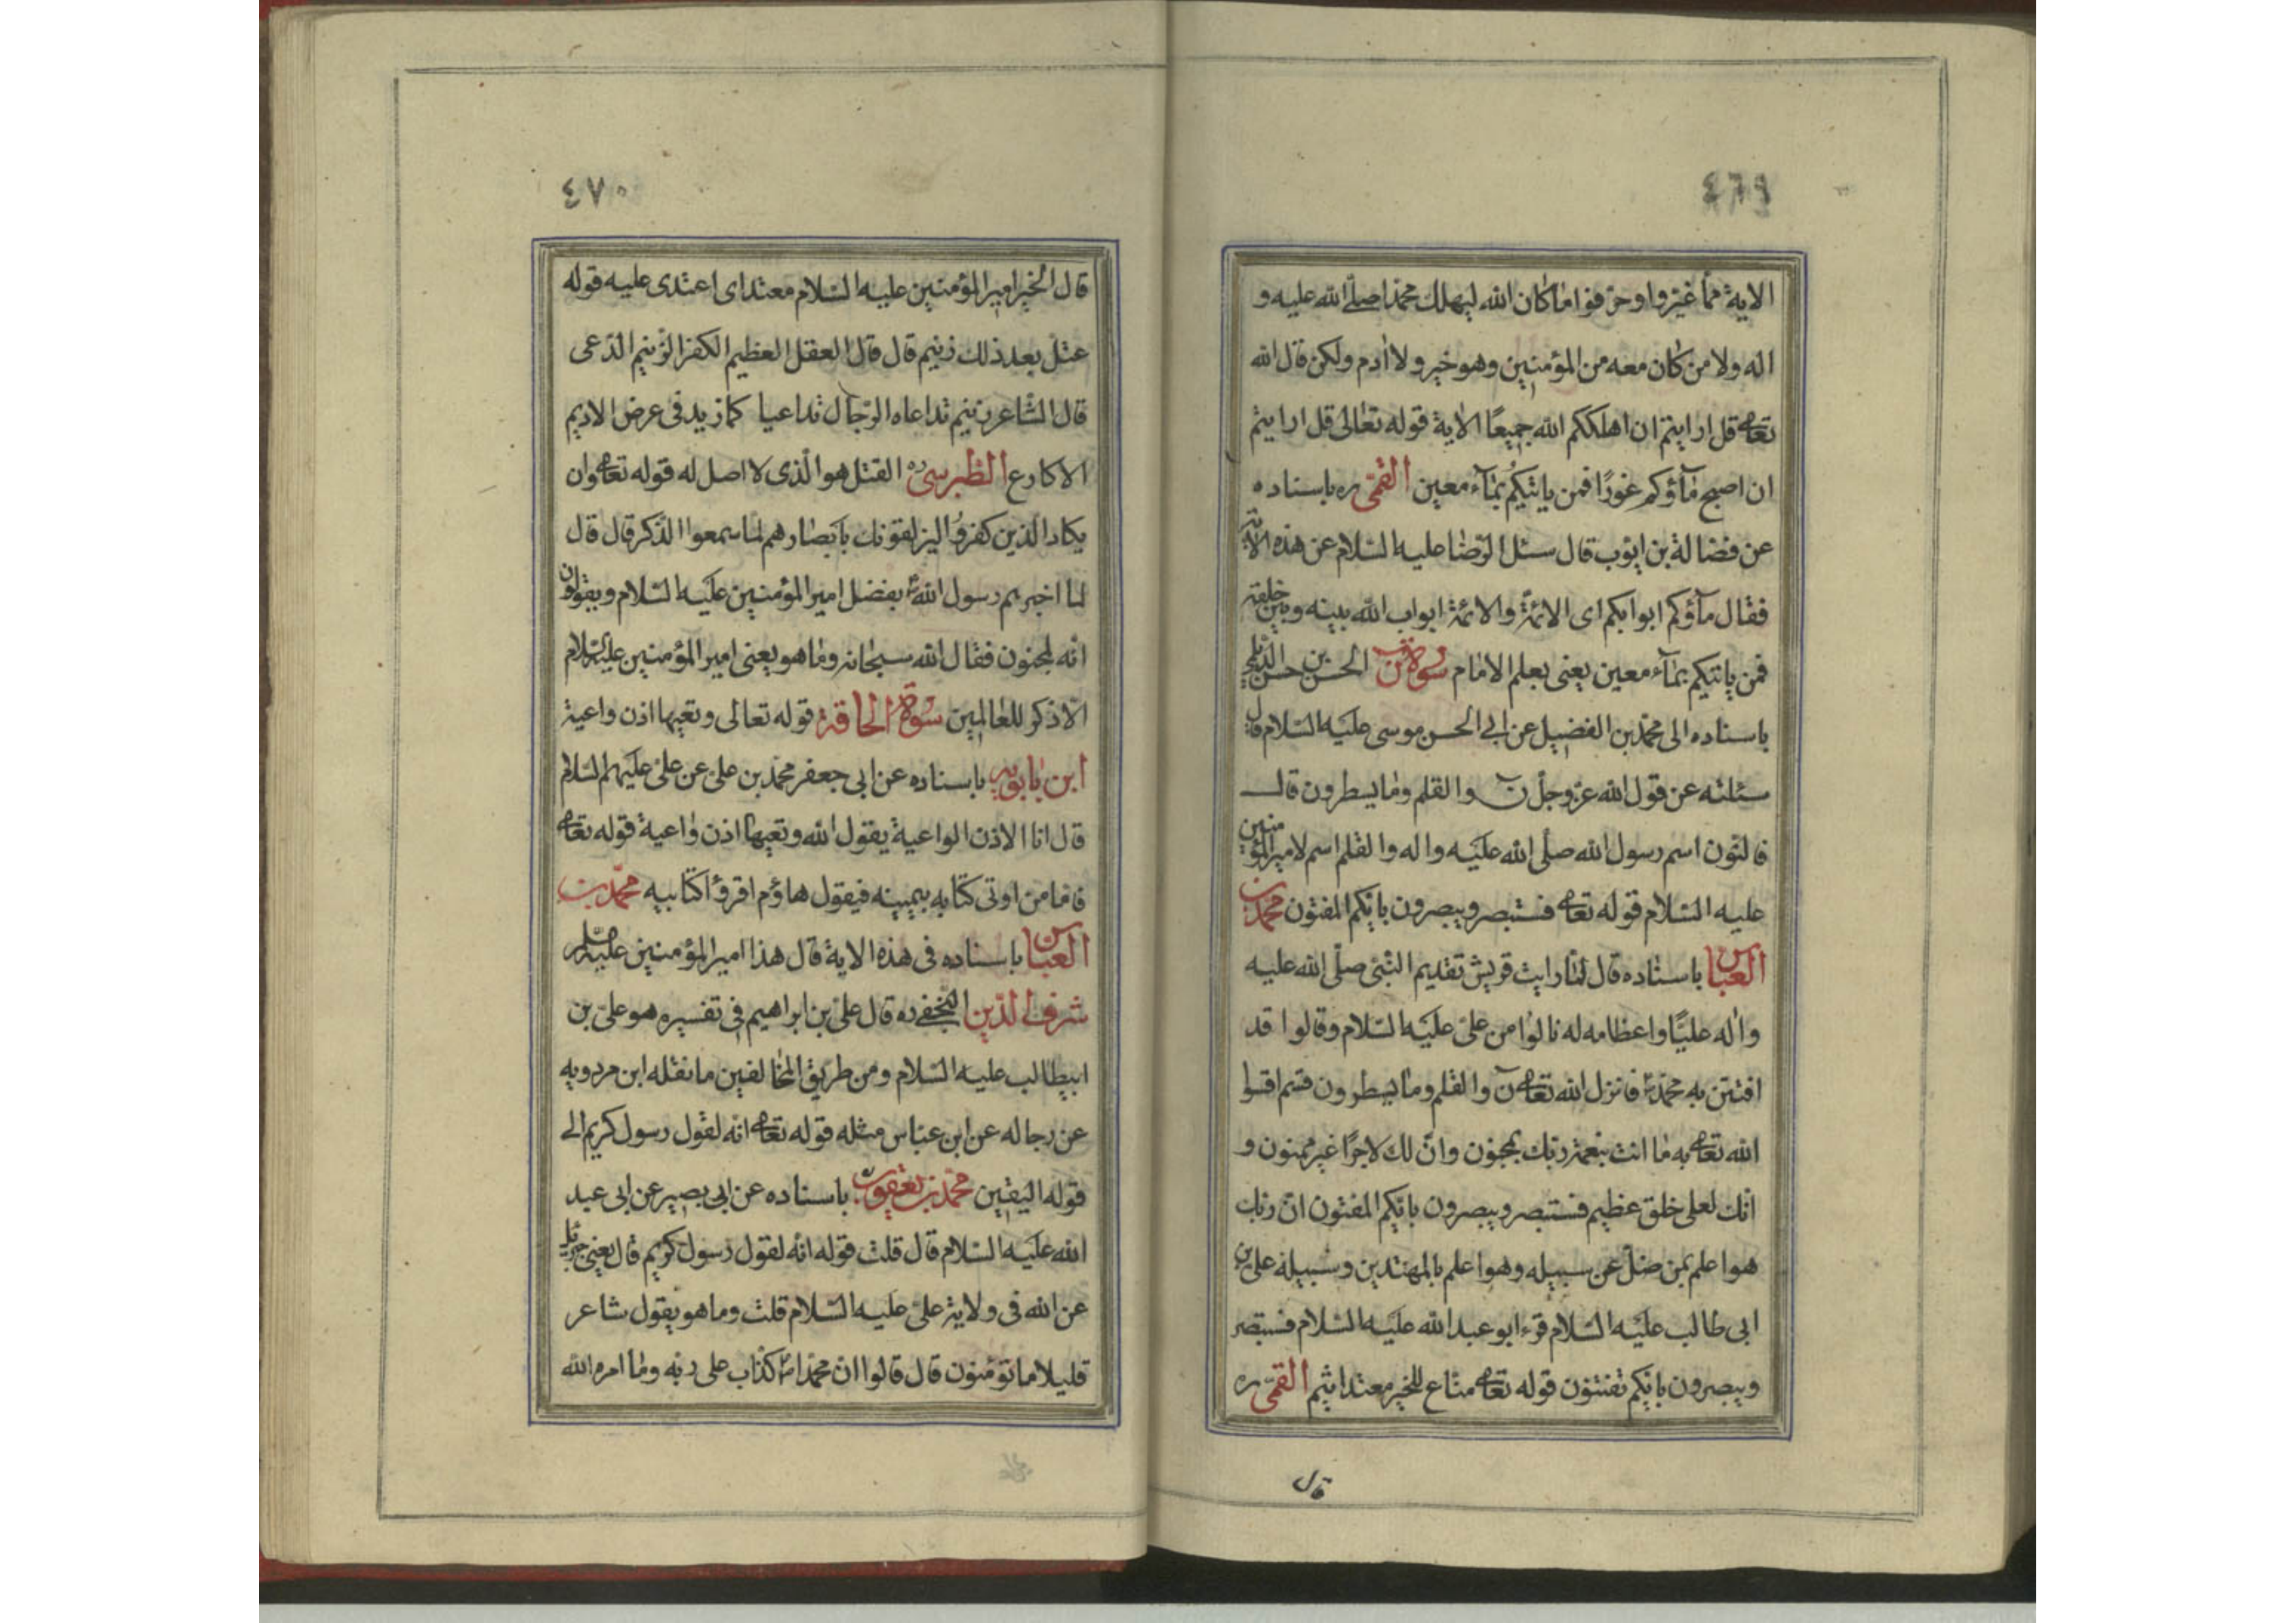 ٤٦٩
الاية مما غيروا وحرفوا ما كان الله ليهلك محمدا صلى الله عليه و
اله ولا من كان معه من المؤمنين وهو خير ولا ادم ولكن قال الله
تعالى قل ارايتم ان اهلككم الله جميعًا الاية قوله تعالى قل ارايتم
ان اصبح مآؤكم غورًا فمن ياتيكم بمآء معين القمى ره باسناده
عن فضالة بن ايوب قال سئل الرضا عليه السلام عن هذه الاية
فقال مآؤكم ابوابكم اى الائمة والائمة ابواب الله بينه وبين خلقه
فمن ياتيكم بمآء معين يعنى بعلم الامام سورة ن الحسن بن حسن الديلمي
باسناده الى محمد بن الفضيل عن ابى الحسن موسى عليه السلام قال
سئلته عن قول الله عز وجل ن والقلم وما يسطرون قال
فالنون اسم رسول الله صلى الله عليه واله والقلم اسم لامير المؤمنين
عليه السلام قوله تعالى فستبصر ويبصرون بايكم المفتون محمد بن
العباس باسناده قال لما رايت قريش تقديم النبى صلى الله عليه
واله عليًا واعظامه له نالوا من على عليه السلام وقالوا قد
افتتن به محمد فانزل الله تعالى ن والقلم وما يسطرون قسم اقسم
الله تعالى به ما انت بنعمة ربك بمجنون وان لك لاجرًا غير ممنون و
انك لعلى خلق عظيم فستبصر ويبصرون بايكم المفتون ان ربك
هو اعلم بمن ضل عن سبيله وهو اعلم بالمهتدين وسبيله على بن
ابى طالب عليه السلام قرء ابو عبد الله عليه السلام فستبصر
ويبصرون بايكم تفتنون قوله تعالى مناع للخير معتد اثيم القمى ره
قال
٤٧٠
قال الخير امير المؤمنين عليه السلام معتد اى اعتدى عليه قوله
عتل بعد ذلك زنيم قال قال العقل العظيم الكفر الزنيم الدعى
قال الشاعر زنيم تداعاه الرجال تداعيا كما زيد فى عرض الاديم
الاكارع الطبرسى ره القتل هو الذى لا اصل له قوله تعالى وان
يكاد الذين كفروا ليزلقونك بابصارهم لما سمعوا الذكر قال قال
لما اخبرهم رسول الله بفضل امير المؤمنين عليه السلام ويقولون
انه لمجنون فقال الله سبحانه وما هو يعنى امير المؤمنين عليه السلام
الا ذكر للعالمين سورة الحاقة قوله تعالى وتعيها اذن واعية
ابن بابويه باسناده عن ابى جعفر محمد بن على عن على عليهم السلام
قال انا الاذن الواعية يقول الله وتعيها اذن واعية قوله تعالى
فاما من اوتى كتابه بيمينه فيقول هاؤم اقرؤا كتابيه محمد بن
العباس باسناده فى هذه الاية قال هذا امير المؤمنين عليه السلام
شرف الدين النجفى ره قال على بن ابراهيم فى تفسيره هو على بن
ابيطالب عليه السلام ومن طريق المخالفين ما نقله ابن مردويه
عن رجاله عن ابن عباس مثله قوله تعالى انه لقول رسول كريم الى
قوله اليقين محمد بن يعقوب باسناده عن ابى بصير عن ابى عبد
الله عليه السلام قال قلت قوله انه لقول رسول كريم قال يعنى جبرئيل
عن الله فى ولاية على عليه السلام قلت وما هو بقول شاعر
قليلا ما تؤمنون قال قالوا ان محمدا كذاب على ربه وما امره الله